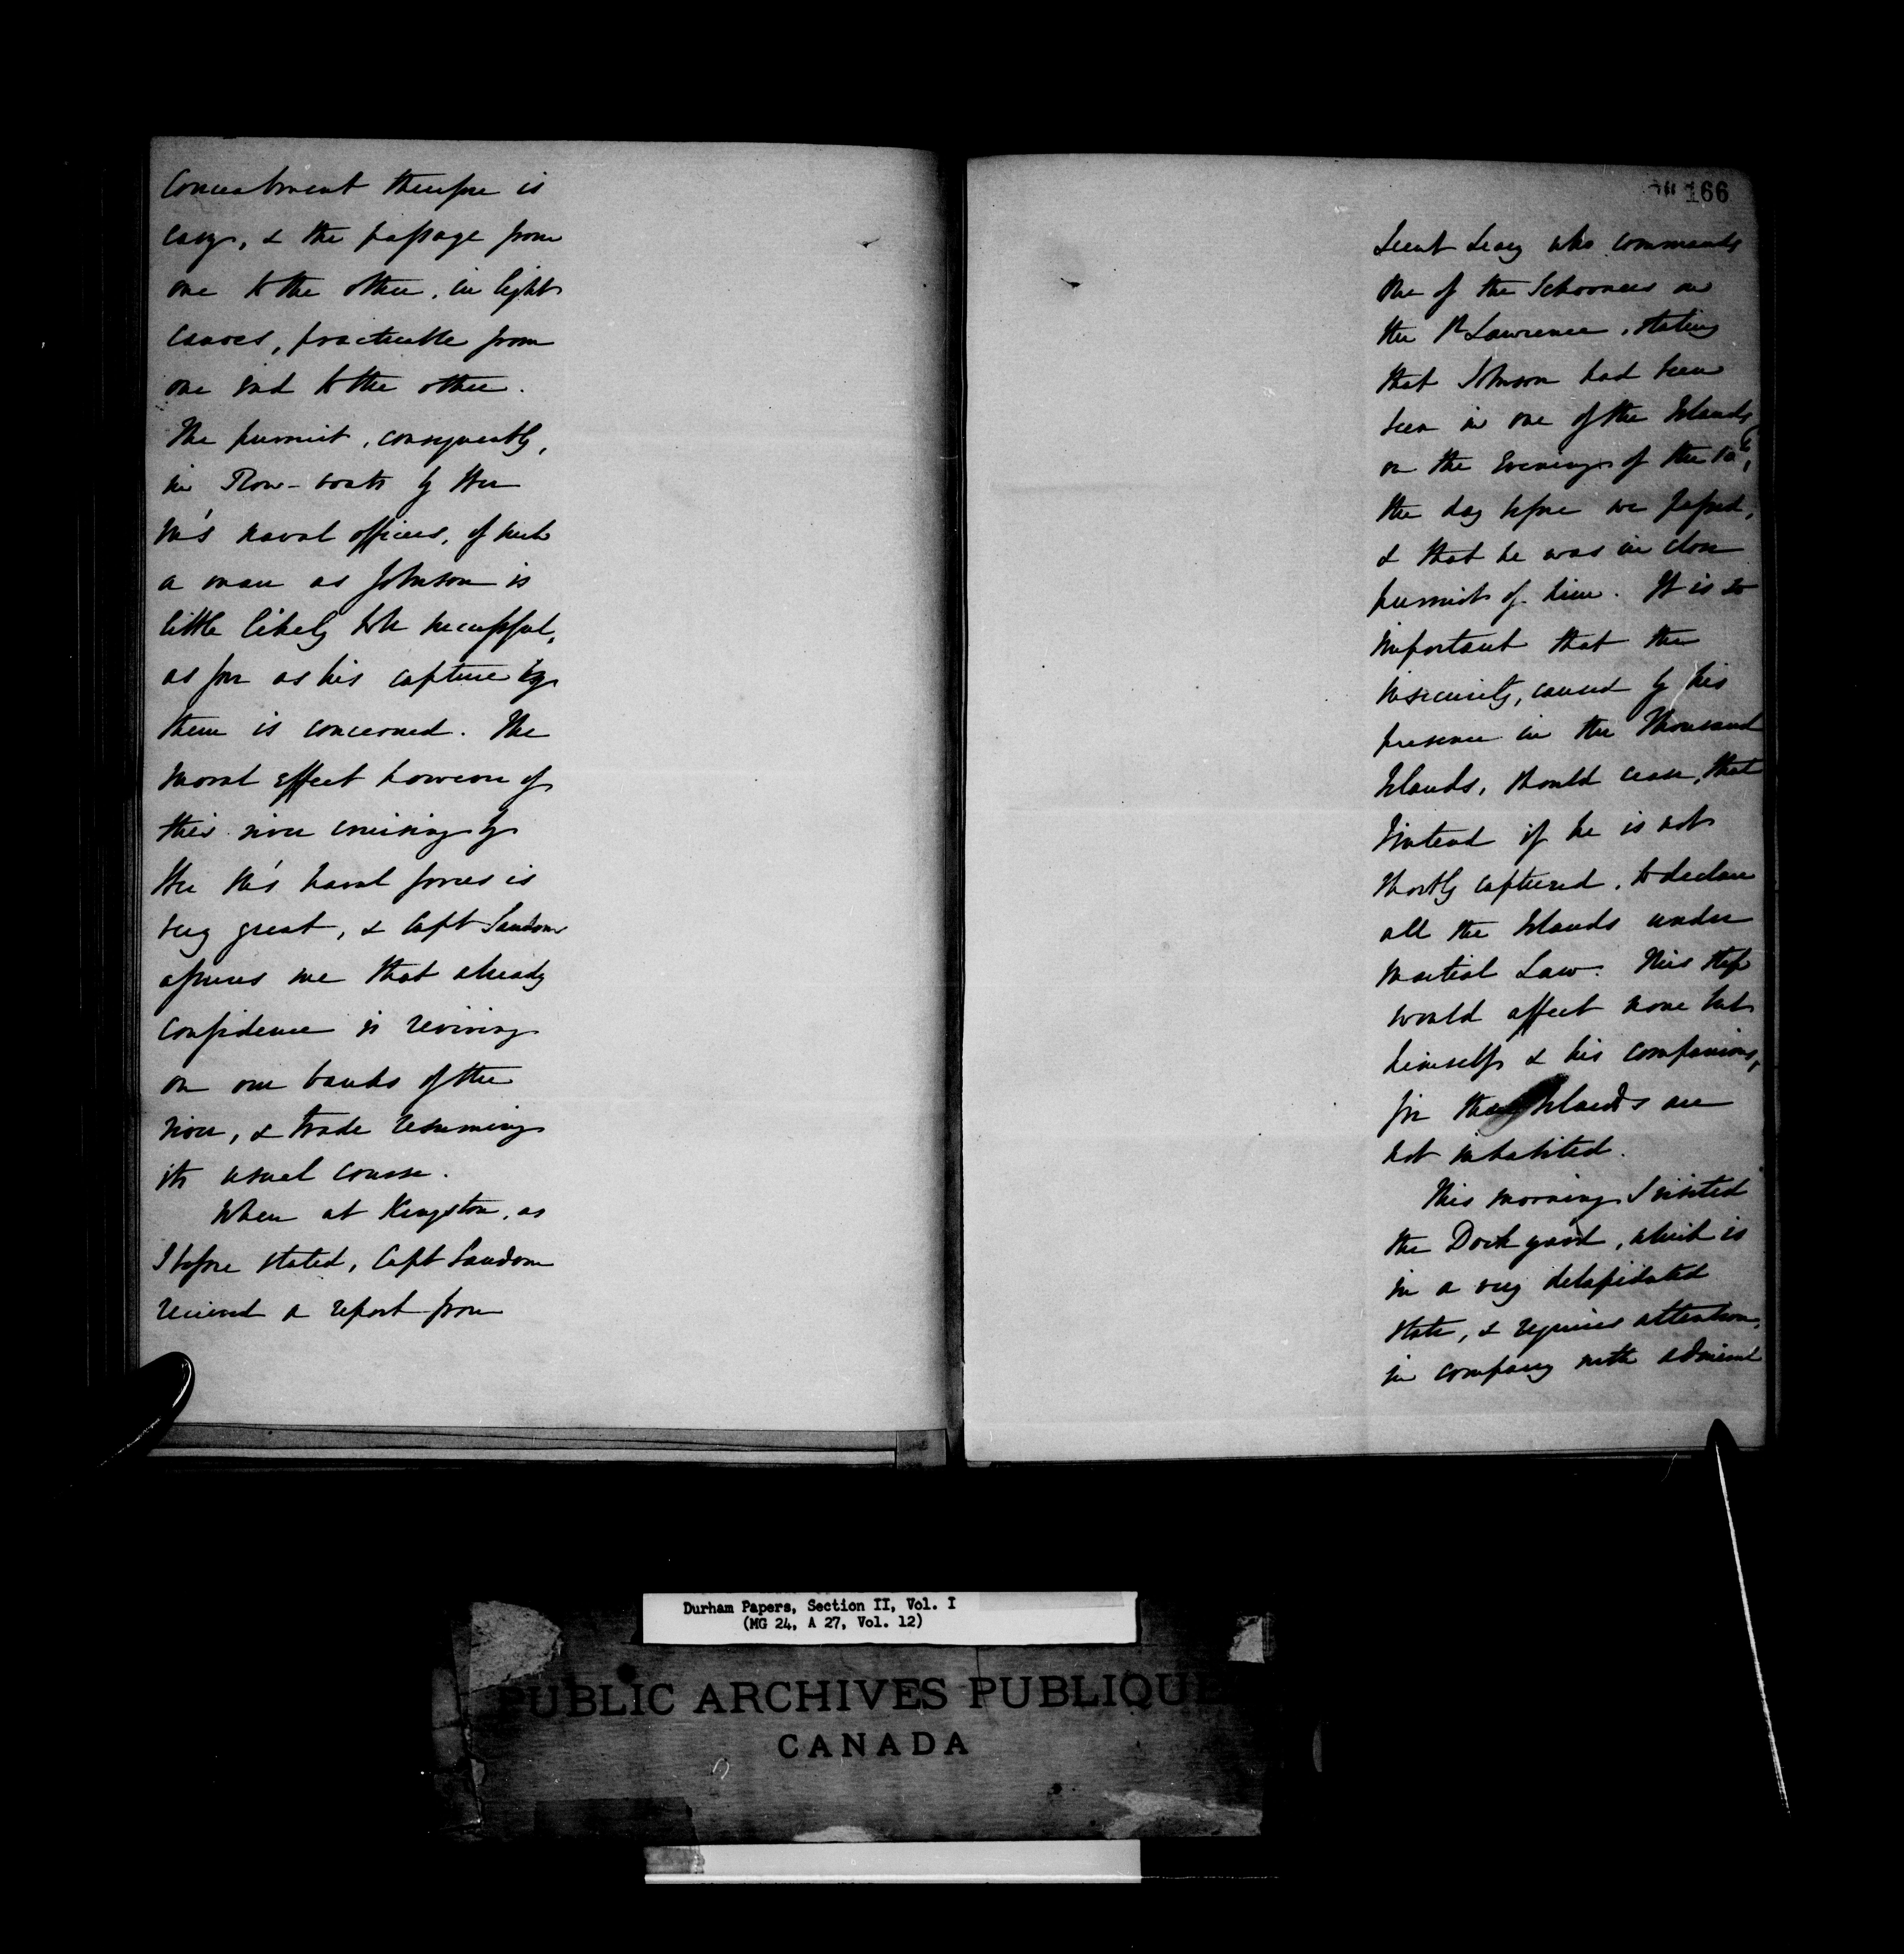 Concealment therefore is
easy, & the passage from
one to the other, in light
canoes, practicable from
one end to the other.
The pursuit, consequently,
in Row-boats by Her
M's naval officers, of such
a man as Johnson is
little likely to be successful,
as far as his capture by
them is concerned. The
moral effect however of
this river cruising by
Her M's naval forces is
very great, & Capt Sandom
assures me that already
confidence is reviving
on our banks of the
river, & trade resuming
its usual course.
When at Kingston, as
I before stated, Capt Sandom
received a report from
166
Lieut Leary who commands
one of the Schooners on
the St Lawrence, stating
that Johnson had been
seen in one of the Islands
on the Evening of the 10th,
the day before we passed,
& that he was in close
pursuit of him. It is so
important that the
insecurity, caused by his
presence in the Thousand
Islands, should cease, that
I intend if he is not
shortly captured, to declare
all the Islands under
Martial Law. This step
would affect none but
himself & his companions,
for these Islands are
not inhabited.
This morning I visited
the Dock yard, which is
in a very delapidated
state, & requires attention,
in company with Admiral
Durham Papers, Section II, Vol. I
(MG 24, A 27, Vol. 12)
PUBLIC ARCHIVES PUBLIQUE
CANADA